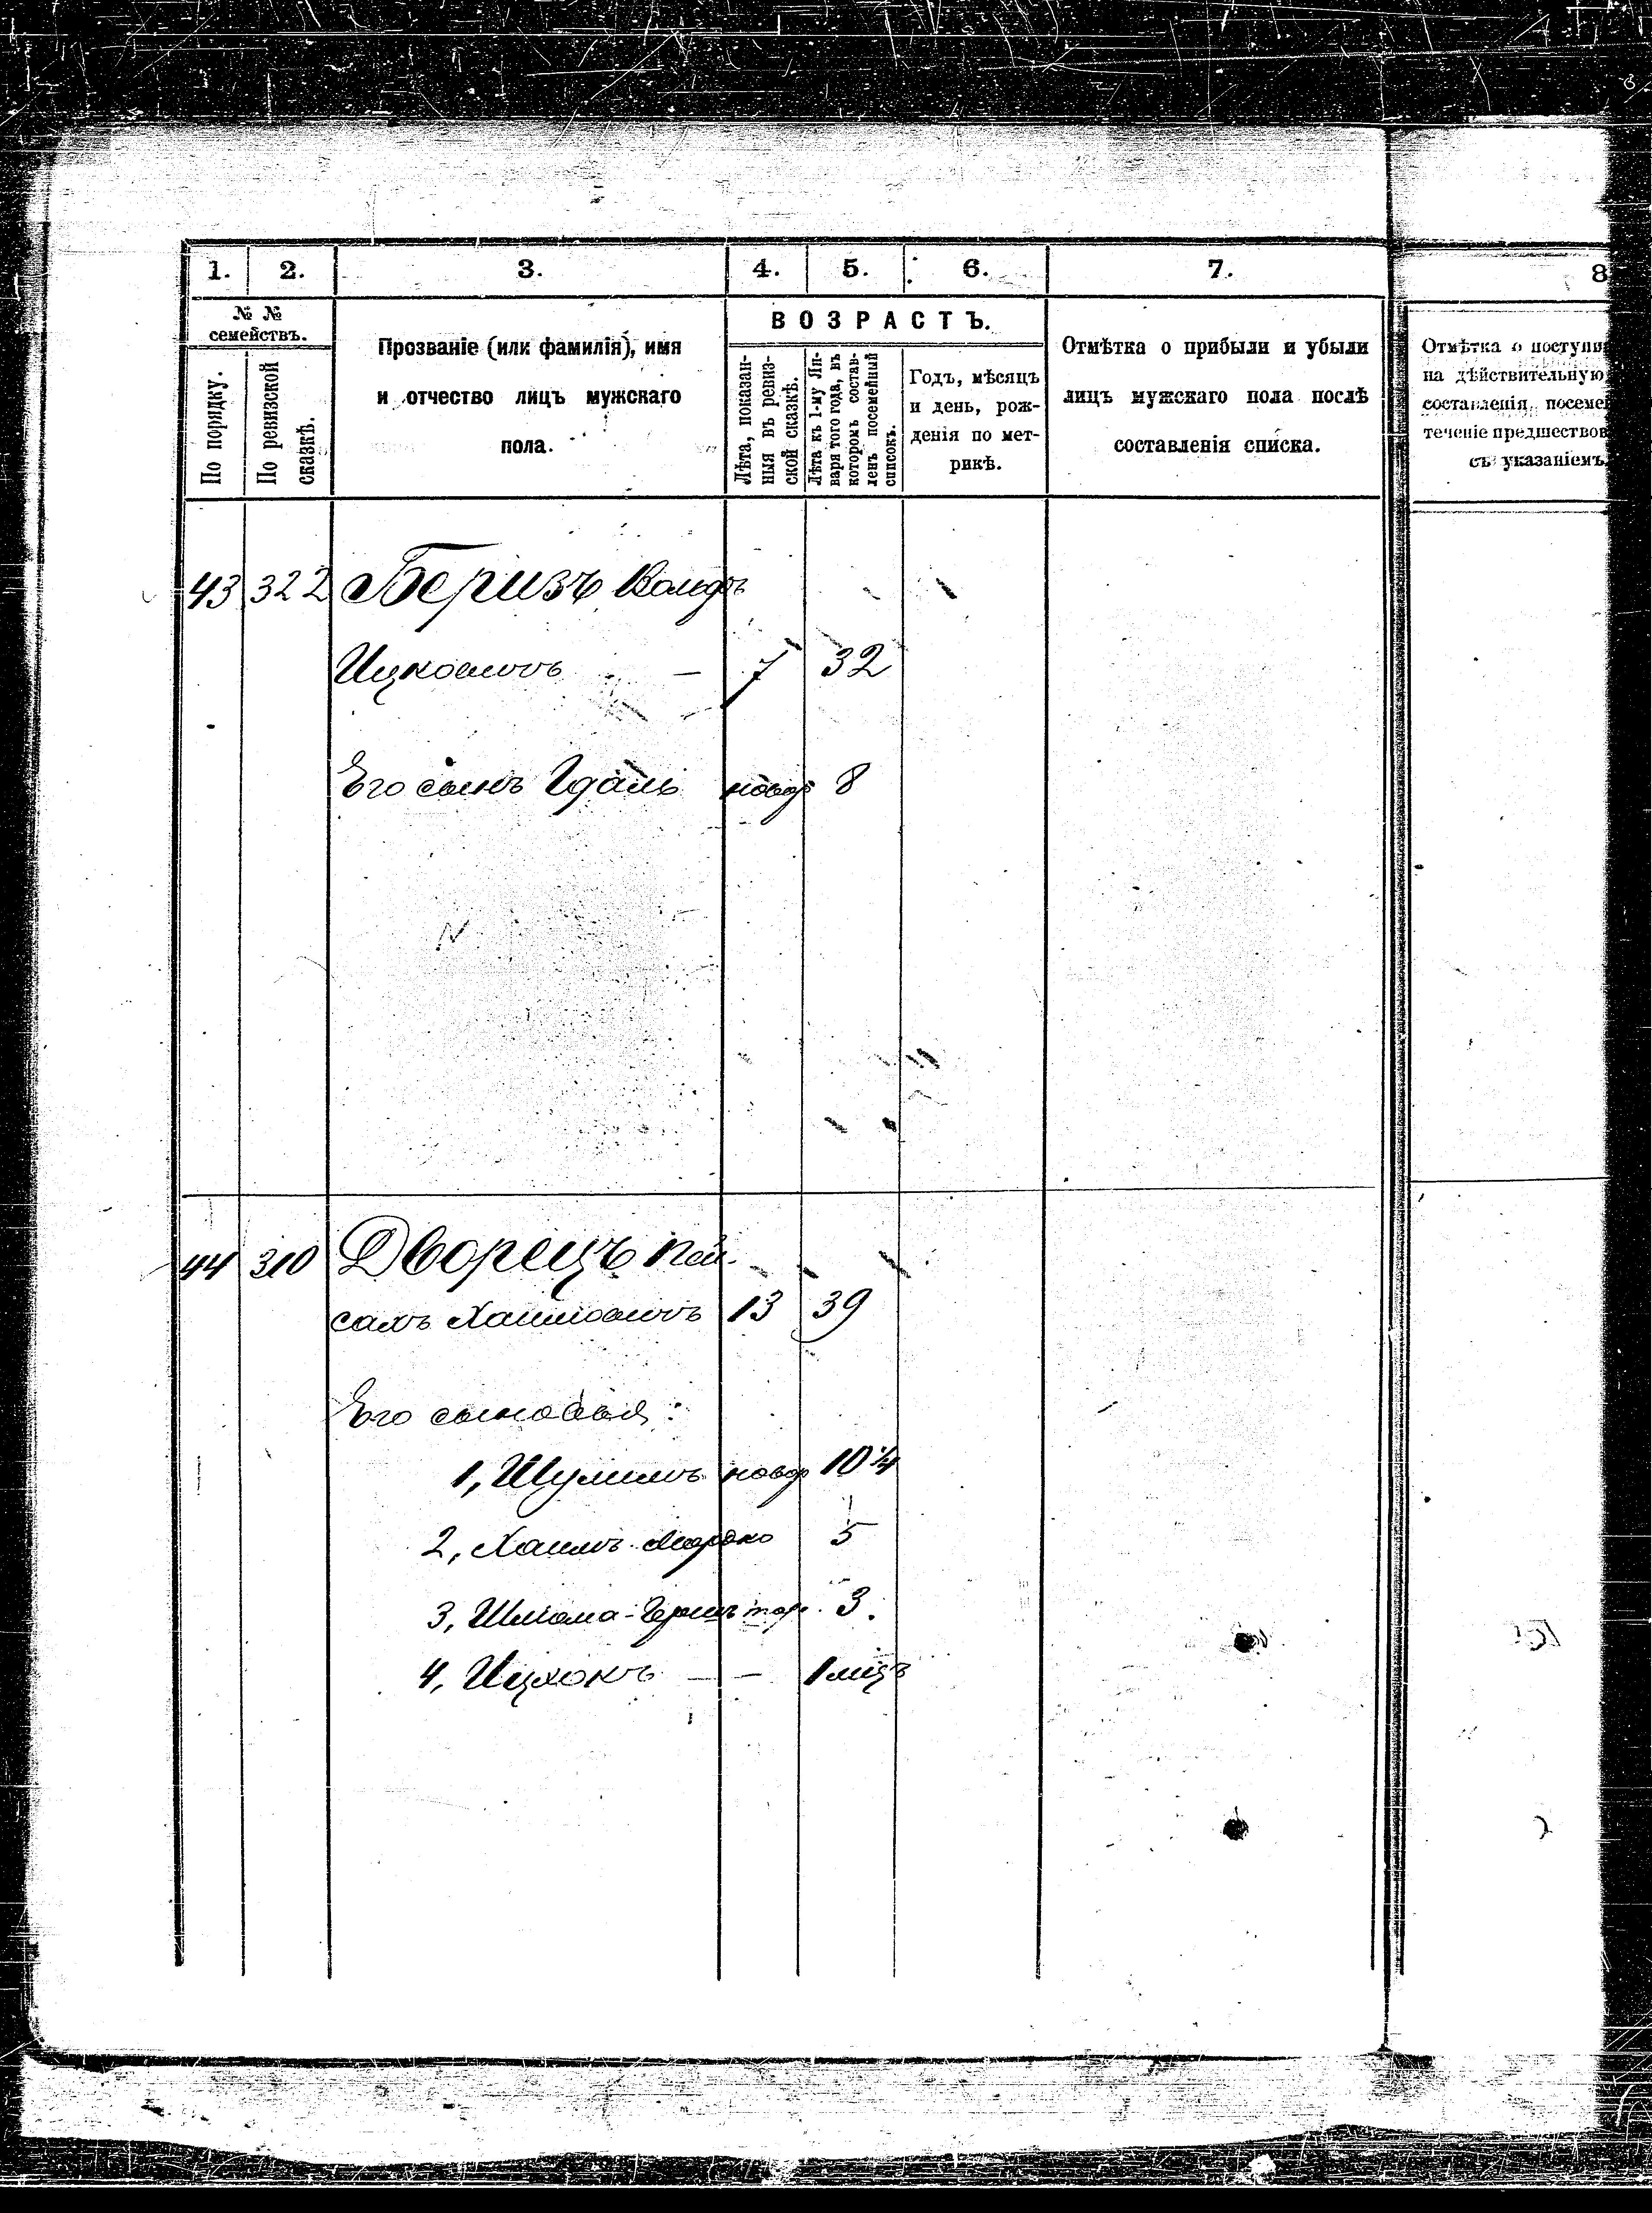 1. 2. 3. 4. 5. 6. 7. 8
№ №
семействъ.
По порядку.
По ревизской
сказкѣ.
Прозваніе (или фамилія), имя
и отчество лицъ мужскаго
пола.
ВОЗРАСТЪ.
Лѣта, показан-
ныя въ ревиз-
ской сказкѣ.
Лѣта къ 1-му Ян-
варя того года, въ
которомъ состав-
ленъ посемейный
списокъ.
Годъ, мѣсяцъ
и день, рож-
денія по мет-
рикѣ.
Отмѣтка о прибыли и убыли
лицъ мужскаго пола послѣ
составленія списка.
Отмѣтка о поступи
на дѣйствительную
составленія посеме
теченіе предшествов
съ указаніемъ
43 322 Беризъ Вольфъ
Ицковичъ — 7 32
Его сынъ Гдаль новор 8
44 310 Дворецъ Пей-
сахъ Хаимовичъ 13 39
Его сыновья:
1, Шулимъ новор 10 ¼
2, Хаимъ-Мордко 5
3, Шлиома-Гершъ 3.
4, Ицхокъ — — 1 мцъ